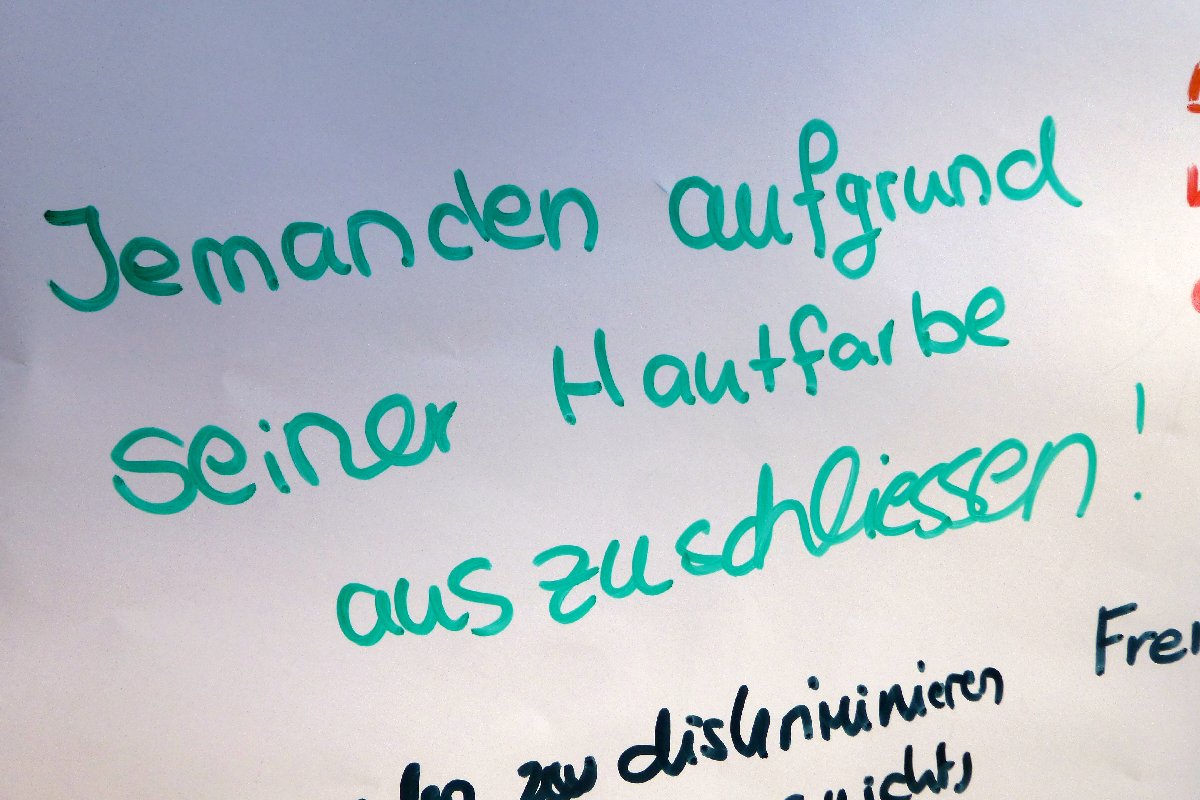 Jemanden aufgrund
seiner Hautfarbe
auszuschliessen!
Frem
zu diskriminieren
nichts